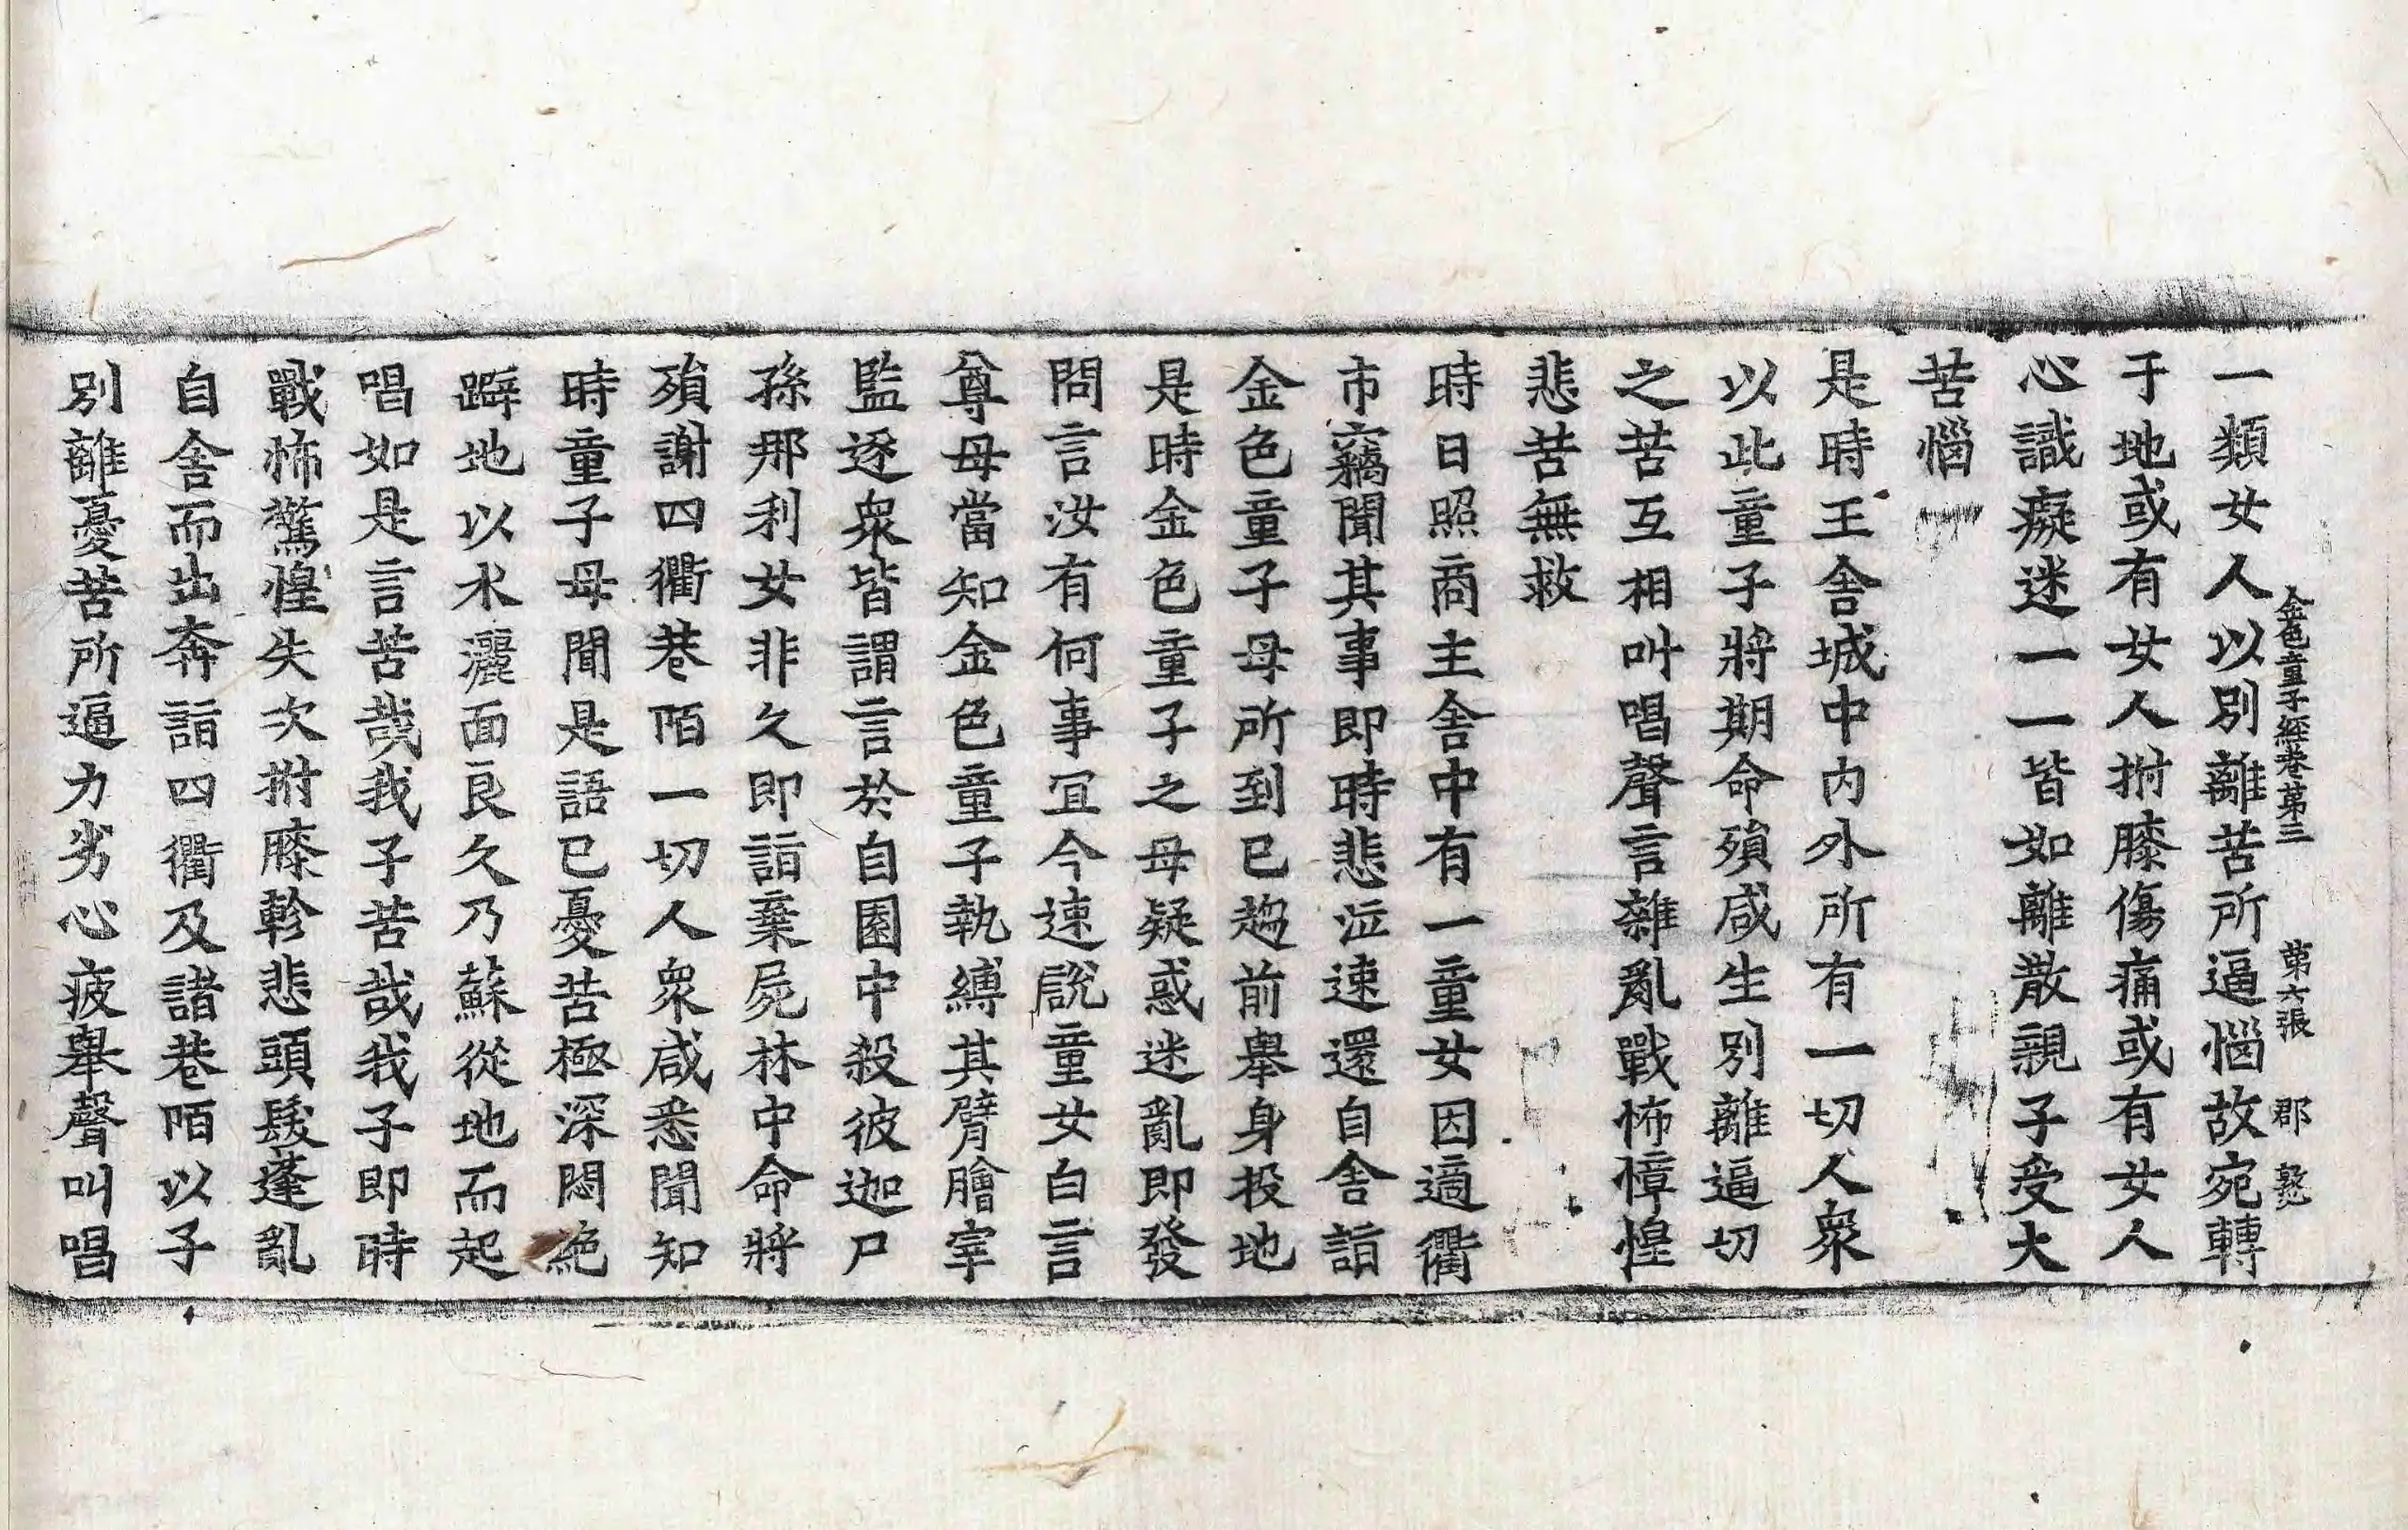 金色童子經卷第三 第六張 郡
一類女人以別離苦所逼惱故宛轉
于地或有女人拊膝傷痛或有女人
心識癡迷一一皆如離散親子受大
苦惱
是時王舍城中內外所有一切人衆
以此童子將期命殞咸生別離逼切
之苦互相叫唱聲言雜亂戰怖慞惶
悲苦無救
時日照商主舍中有一童女因適衢
市竊聞其事即時悲泣速還自舍詣
金色童子母所到已趨前舉身投地
是時金色童子之母疑惑迷亂即發
問言汝有何事冝今速說童女白言
尊母當知金色童子執縛其臂膾宰
監逐衆皆謂言於自園中殺彼迦尸
孫那利女非久即詣棄屍林中命將
殞謝四衢巷陌一切人衆咸悉聞知
時童子母聞是語已憂苦極深悶絶
躃地以水灑面良久乃蘇從地而起
唱如是言苦哉我子苦哉我子即時
戰怖驚惶失次拊膝軫悲頭髮蓬亂
自舍而出奔詣四衢及諸巷陌以子
別離憂苦所逼力劣心疲舉聲叫唱